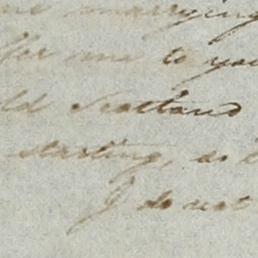 me marrying
for me to you
old Scotland
starting, as i
I do not